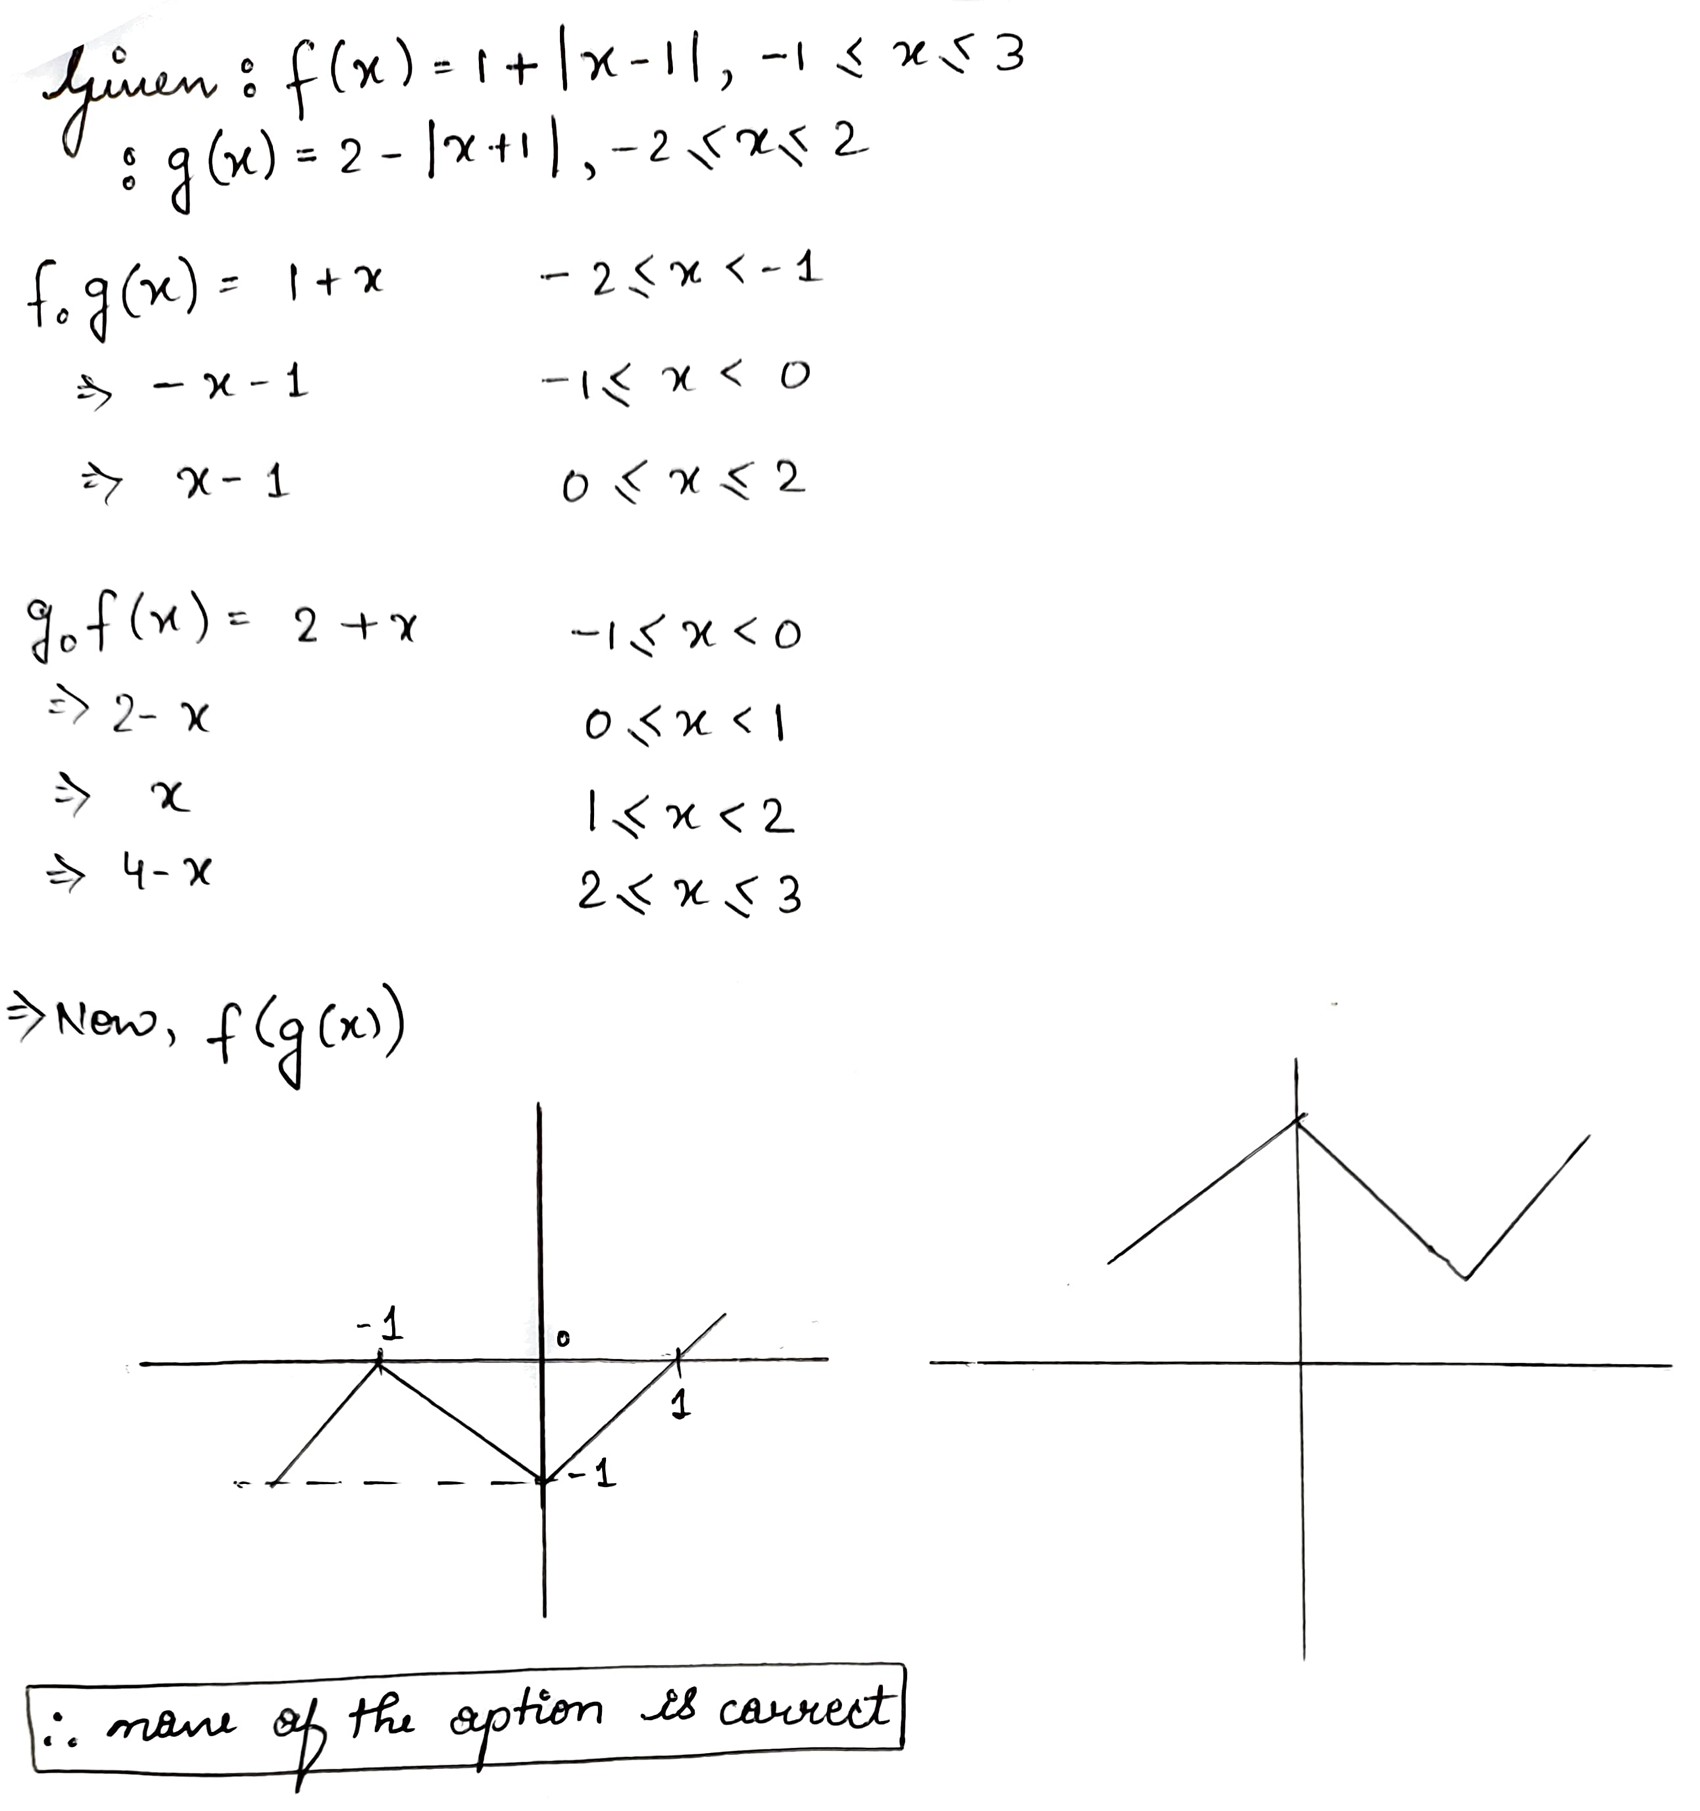 Given : f(x) = 1 + |x-1|, -1 ≤ x ≤ 3
: g(x) = 2 - |x+1|, -2 ≤ x ≤ 2
fog(x) = 1+x -2 ≤ x < -1
⇒ -x-1 -1 ≤ x < 0
⇒ x-1 0 ≤ x ≤ 2
gof(x) = 2+x -1 ≤ x < 0
⇒ 2-x 0 ≤ x < 1
⇒ x 1 ≤ x < 2
⇒ 4-x 2 ≤ x ≤ 3
⇒ Now, f(g(x))
-1
0
1
-1
∴ none of the option is correct